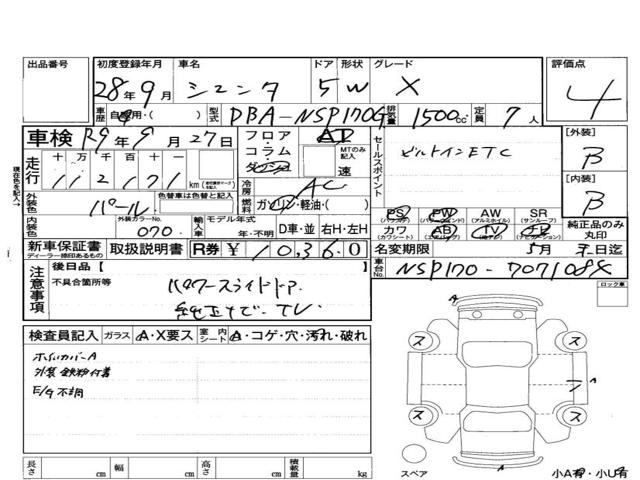 出品番号 初度登録年月 車名 ドア 形状 グレード 評価点
28年9月 シエンタ 5 W X 4
車歴 自家用・( ) 型式 DBA-NSP170G 排気量 1500cc 定員 7人
車検 R9年9月27日 フロア・コラム・ AT セールスポイント [外装]
MTのみ記入 速 ビルトインETC B
走行 十万千百十一 112171 km 冷房 AC [内装]
外装色 パール 色替車は色替と記入 燃料 ガソリン・軽油・( ) B
PS PW AW SR
(パワステ) (パワーウィンドウ) (アルミホイル) (サンルーフ)
内装色 外装カラーNo. 070 輸入車 モデル年式 年・不明 D車・並 右H・左H カワ AB TV 純正品のみ丸印
(カワシート) (エアバッグ) (ナビゲーション)
新車保証書 取扱説明書 R券 ¥10,360 名変期限 月 日迄
ディーラー捺印あるもの
車台No. NSP170-
注意事項 後日品【
不具合箇所等 パワースライドドア
TV
ロック車
現在色を記入→
検査員記入 ガラス A・X要ス 室内シート A・コゲ・穴・汚れ・破れ
ホイルカバーA
外装鉄粉付着
E/G不調
A
ス ス
A
ス ス
A
スペア
長さ cm 幅 cm 高さ cm 積載量 kg 小A有・小U有